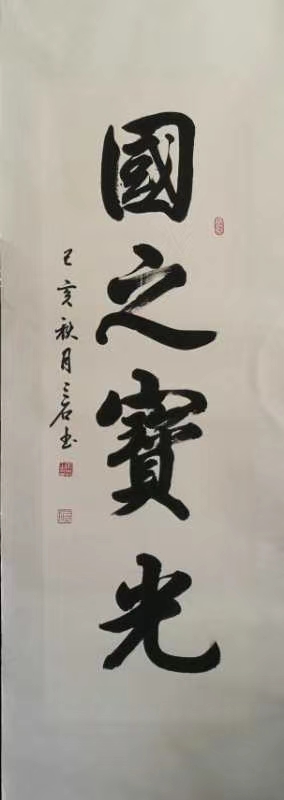 國之寶光
己亥秋月三石书